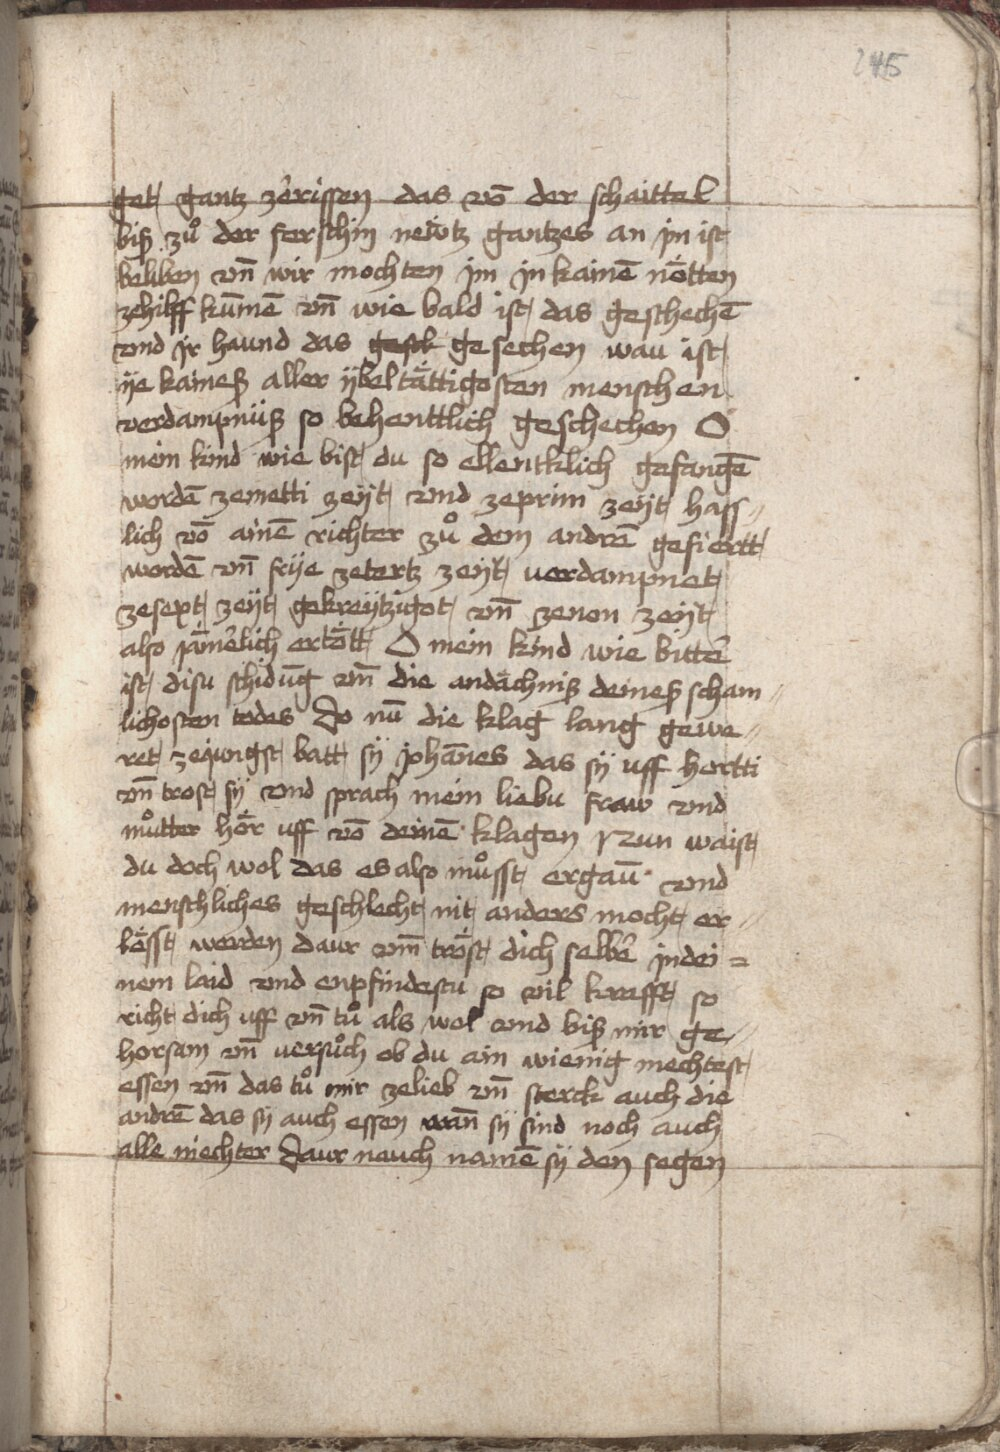 245
get gantz zerissen das vō der schaittel
biß zů der ferschin neẅtz gantzes an jm ist
beliben vn̄ wir mochten jm jn kainē nǒtten
zehilff kūmē vn̄ wie bald ist das geschechē
vnd jr haund das gesck gesechen wau ist
ye kaineß aller ÿbeltǎttigosten menschen
verdampnüß so behenttlich geschechen O
mein kind wie bist du so ellentklich gefangē
wordē zemetti zeÿt vnd zeprim zeÿt hass
lich vō ainē richter zů dem andrē gefiertt
wordē vn̄ frÿe zetertz zeÿt verdampnet
zesext zeÿt gekreÿtzigot vn̄ zenon zeÿt
also jāmerlich ertǒtt O mein kind wie bitter
ist disu schidūg vn̄ die andǎchniß deineß scham
lichosten todes Do nū die klag lang gewe
ret zejungst batt sÿ johānes das sÿ uff hortti
vn̄ trost sÿ vnd sprach mein liebu fraw vnd
můtter hǒr uff vō deinē klagen Nun waist
du doch wol das es also můsst ergaū vnd
menschliches geschlecht nit anders mocht er
lǒsst werden daur vm̄ trǒst dich selber jn dei
nem laid vnd enpfindestu so vil krafft so
richt dich uff vn̄ tů als wol vnd biß mir ge
horsam vn̄ versůch ob du ain wienig mechtest
essen vn̄ das tů mir zelieb vn̄ sterck auch die
andrē das sÿ auch essen wan̄ sÿ sind noch auch
alle niechter Daur nauch namē sÿ den segen